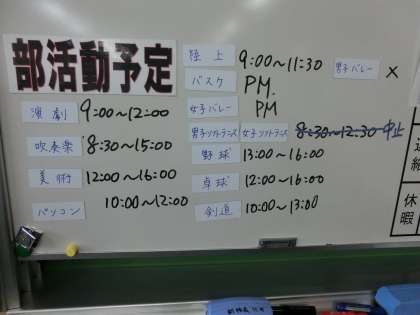 部活動予定
演劇 9:00～12:00
吹奏楽 8:30～15:00
美術 12:00～16:00
パソコン 10:00～12:00
陸上 9:00～11:30
男子バレー ×
バスケ PM.
女子バレー PM
男子ソフトテニス 女子ソフトテニス 8:30～12:30 中止
野球 13:00～16:00
卓球 12:00～16:00
剣道 10:00～13:00
休
暇